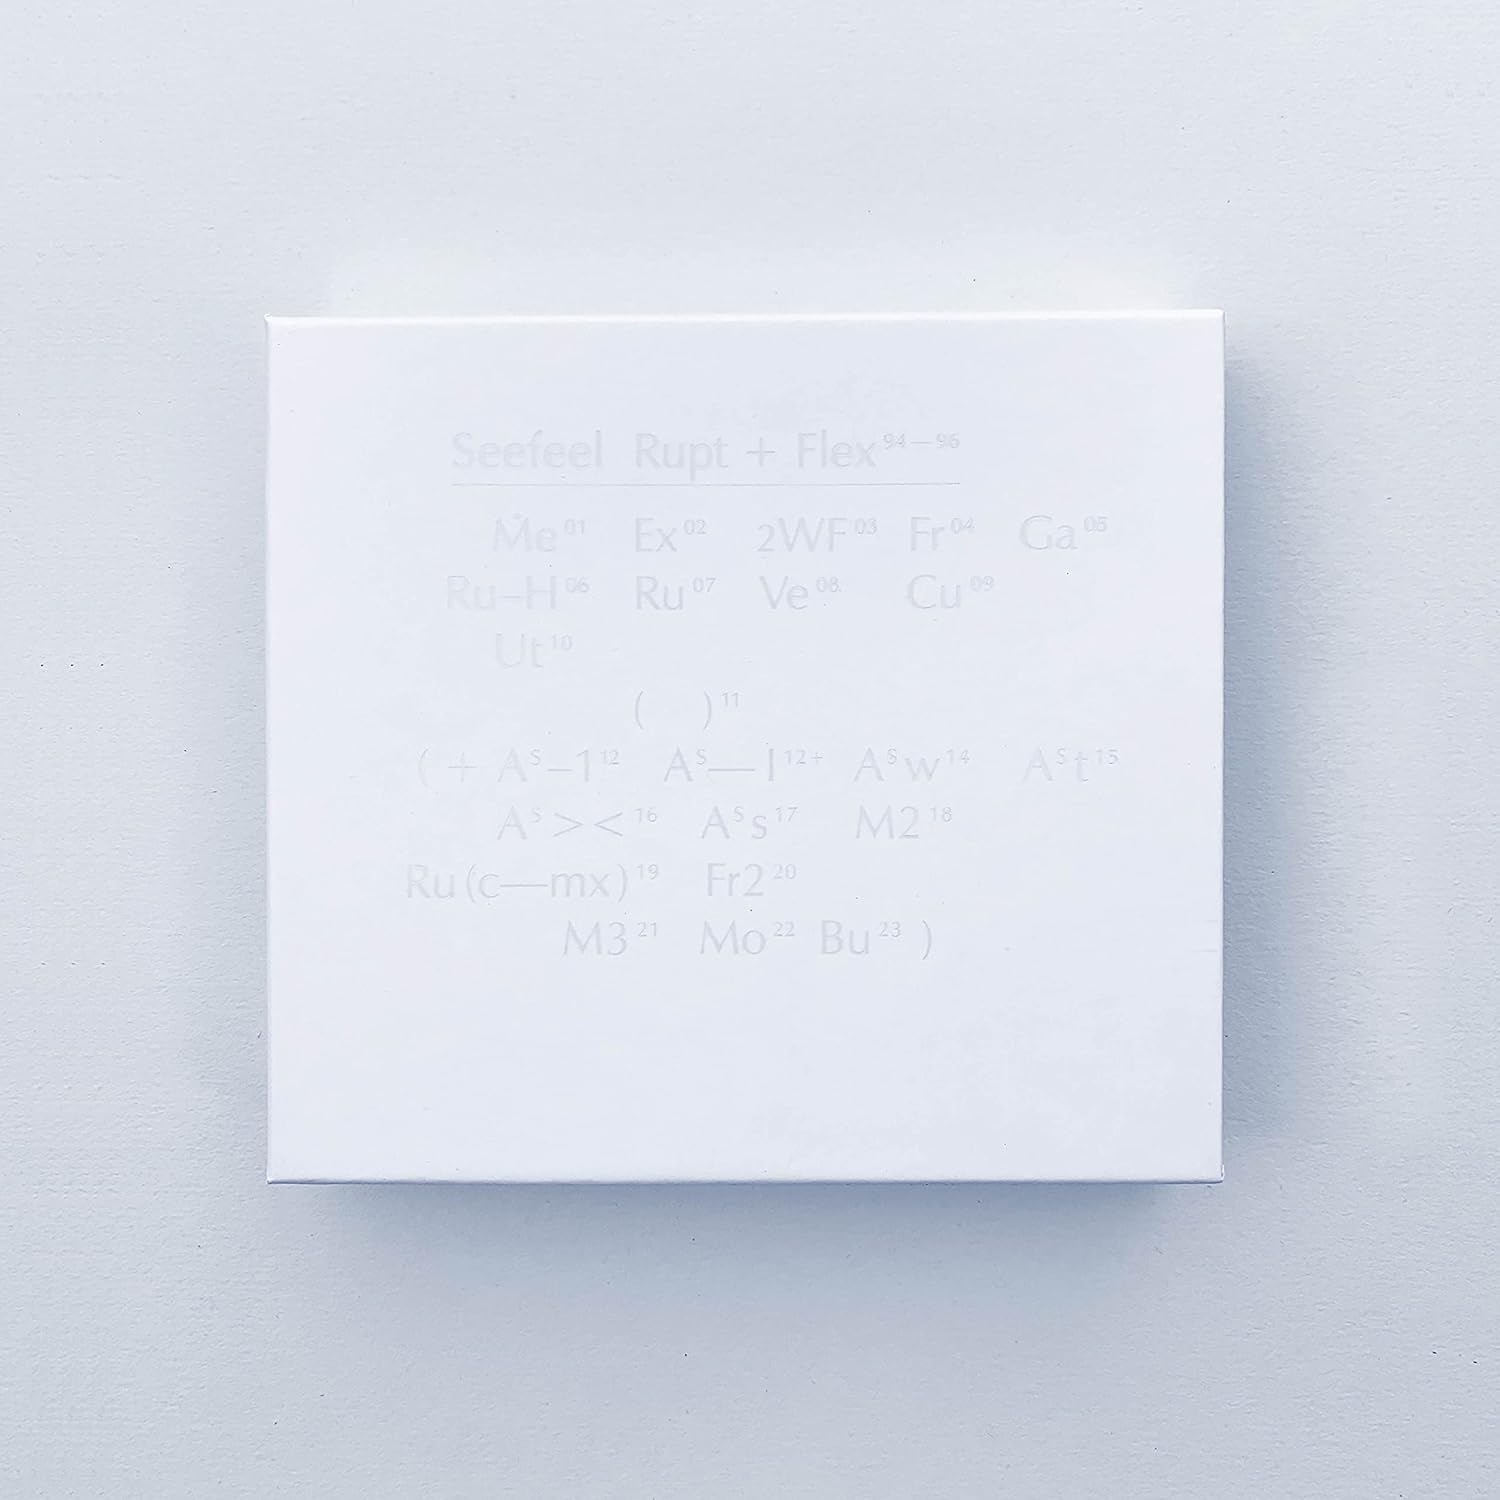 Seefeel Rupt + Flex⁹⁴⁻⁹⁶
Me⁰¹ Ex⁰² 2WF⁰³ Fr⁰⁴ Ga⁰⁵
Ru–H⁰⁶ Ru⁰⁷ Ve⁰⁸ Cu⁰⁹
Ut¹⁰
( )¹¹
( + Aˢ–1¹² Aˢ—l¹²⁺ Aˢw¹⁴ Aˢt¹⁵
Aˢ><¹⁶ Aˢs¹⁷ M2¹⁸
Ru(c—mx)¹⁹ Fr2²⁰
M3²¹ Mo²² Bu²³ )